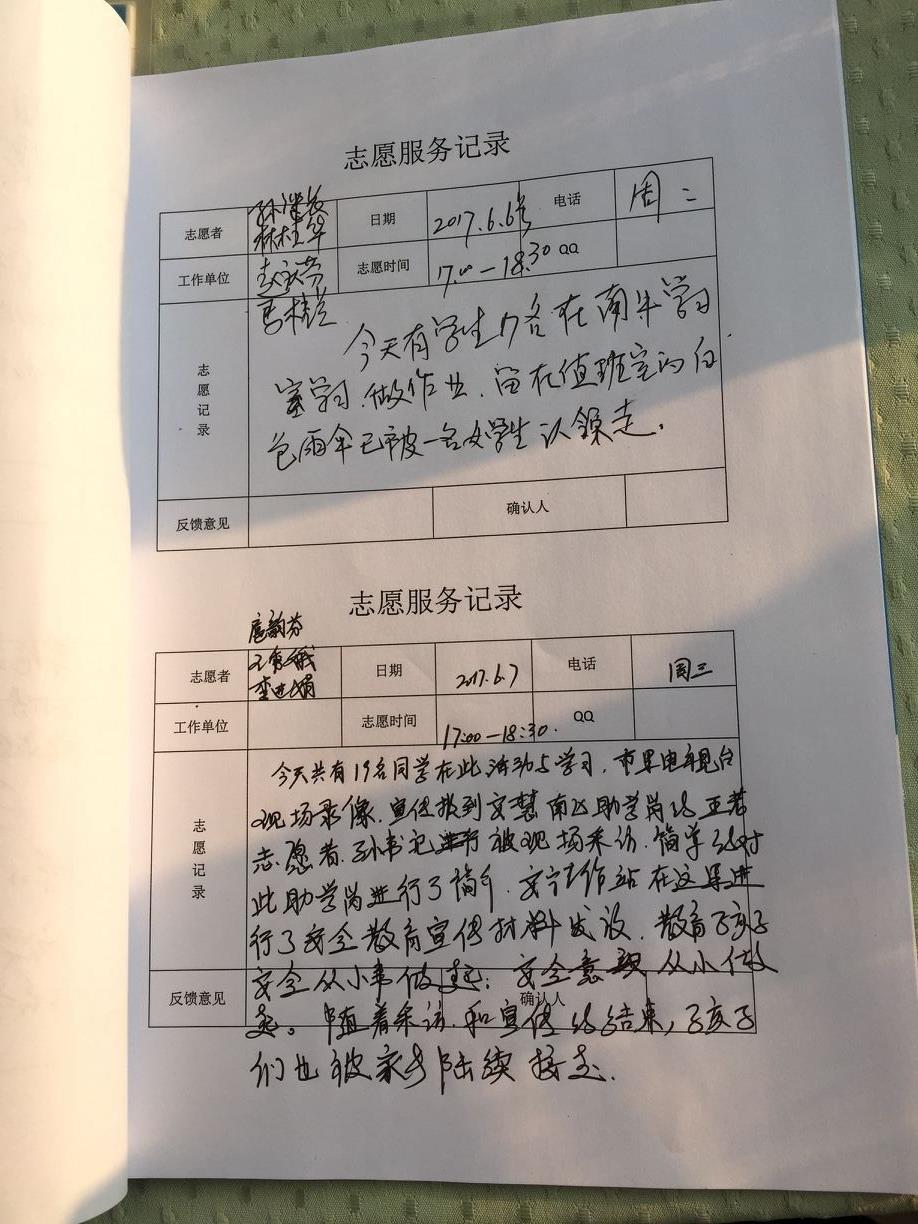 志愿服务记录
志愿者 林桂华 日期 2017.6.6号 电话 周二
工作单位 志愿时间 17:00—18:30 QQ
马桂兰
今天有学生17名在南牛学习
志愿记录 室学习.做作业.留在值班室的白
色雨伞已被一名女学生认领走.
反馈意见 确认人
志愿服务记录
志愿者 日期 2017.6.7 电话 周三
工作单位 志愿时间 17:00—18:30. QQ
今天共有19名同学在此活动与学习.市里电视台
现场录像.宣传报到文慧南 助学岗的 志愿者.孙书记 被现场采访.简单的对
志愿记录 此助学岗进行了简介. 工作站在这里进
行了安全教育宣传材料发放.教育孩子
安全从小事做起;安全意识从小做
反馈意见 确认人
起。随着采访.和宣传的结束,孩子
们也被家长陆续接走.